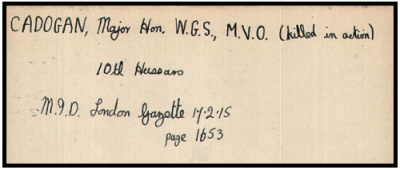 CADOGAN, Major Hon. W.G.S., M.V.O. (killed in action)
10th Hussars
M.I.D. London Gazette 17.2.15
page 1653